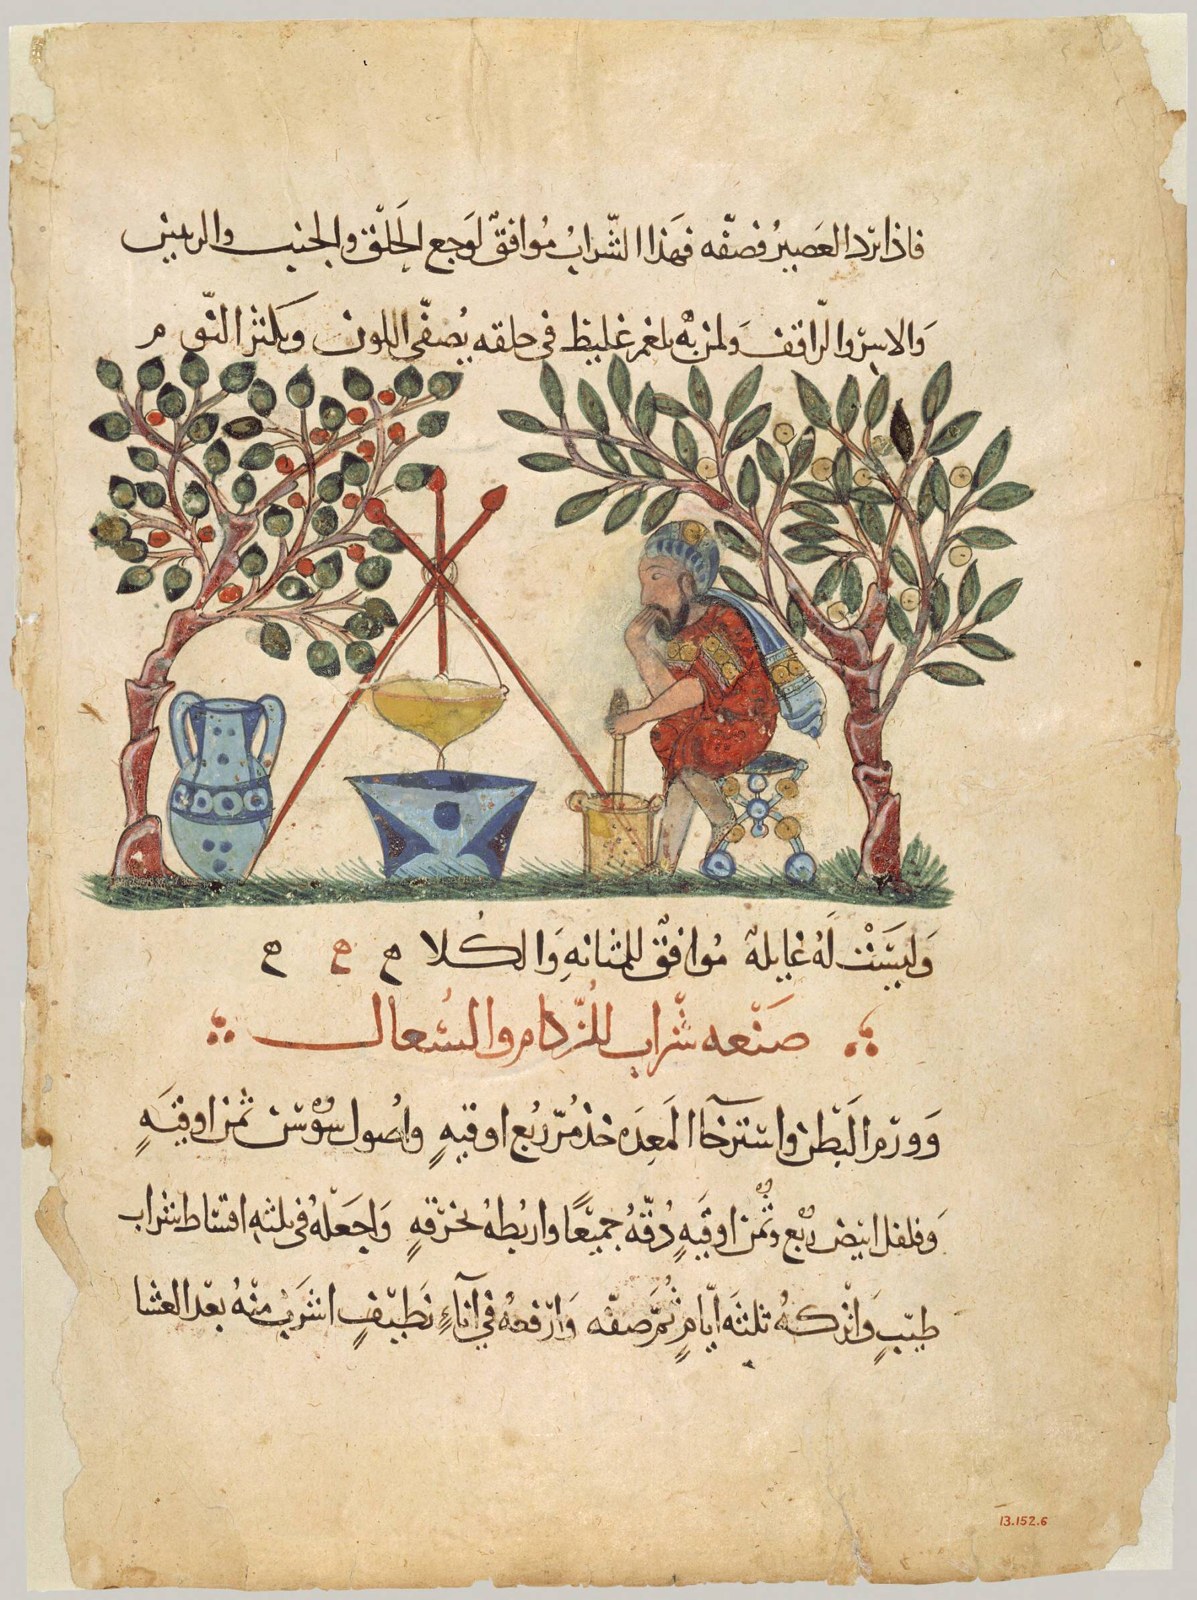 فاذا برد العَصيرُ فصفّه فهَذا الشّرابُ مُوافقٌ لوَجع الحَلْق والجنب والريين
وَالاسر والرّاقف وَلمن بهْ بلغم غليظ في حلقه يُصفّي اللون ويكثر النّوم
وَليسَتْ لهُ غايلهٌ مُوافقٌ للمثانهِ وَالكُلا ح ح ح
صَنْعه شَراب للزّكام والسُعال
وَورَم البَطن واسْترخَآ المَعِدَه خذ مُرّ رُبع اوقيهٍ واُصول سُوسَن ثمن اوقيَهٍ
وَفلفل ابيض رُبع وثُمن اوقيَهٍ دُقّهُ جميعًا واربُطهُ بخرْقهٍ وَاجعَلهُ في ثلثه اقساط شراب
طيّبٍ وَاتركهُ ثلثَه اَيّامٍ ثُمَّ صفّه وَارْفعهُ في انآءٍ نَظيفٍ اشرَبْ منْهُ بعْد العشا
13.152.6